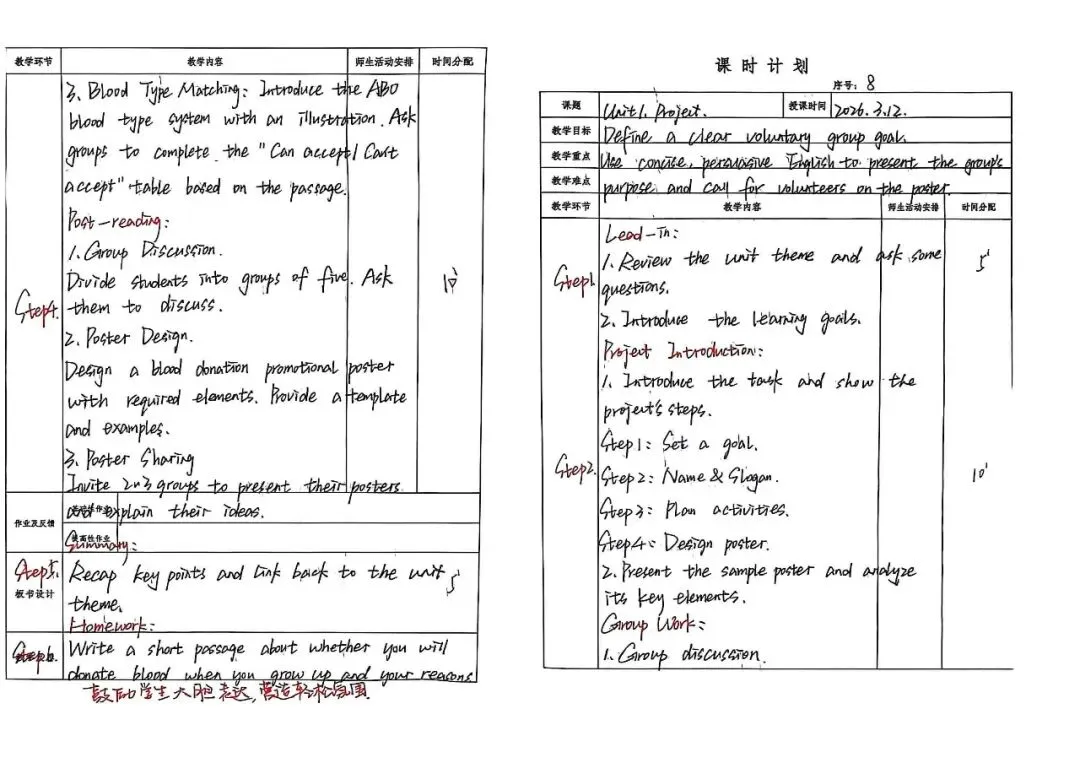 教学环节 教学内容 师生活动安排 时间分配
3. Blood Type Matching: Introduce the ABO
blood type system with an illustration. Ask
groups to complete the "Can accept/Can't
accept" table based on the passage.
Post-reading:
1. Group Discussion.
Divide students into groups of five. Ask
Step4. them to discuss. 10'
2. Poster Design.
Design a blood donation promotional poster
with required elements. Provide a template
and examples.
3. Poster Sharing
Invite 2~3 groups to present their posters
作业及反馈 and explain their ideas.
提高性作业
Summary:
Step5. Recap key points and link back to the unit 5'
板书设计 theme.
Homework:
Step6. Write a short passage about whether you will
donate blood when you grow up and your reasons
鼓励学生大胆表达,营造轻松氛围.
课时计划
序号: 8
课题 Unit 1. Project. 授课时间 2026.3.12.
教学目标 Define a clear voluntary group goal.
教学重点 Use concise, persuasive English to present the group's
教学难点 purpose and call for volunteers on the poster.
教学环节 教学内容 师生活动安排 时间分配
Lead-in:
Step1. 1. Review the unit theme and ask some 5'
questions.
2. Introduce the learning goals.
Project Introduction:
1. Introduce the task and show the
project's steps.
Step1: Set a goal.
Step2. Step2: Name & Slogan. 10'
Step3: Plan activities.
Step4: Design poster.
2. Present the sample poster and analyze
its key elements.
Group Work:
1. Group discussion.